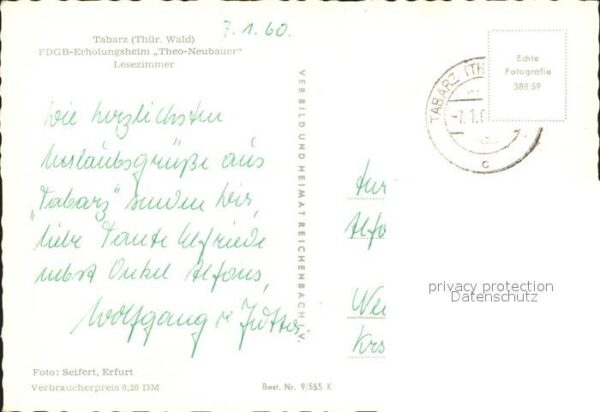 7.1.60.
Tabarz (Thür. Wald)
FDGB-Erholungsheim „Theo-Neubauer"
Lesezimmer
Die herzlichsten
Urlaubsgrüße aus
„Tabarz" senden Dir,
liebe Tante Elfriede
nebst Onkel Alfons,
Wolfgang u. Jutta.
Foto: Seifert, Erfurt
Verbraucherpreis 0,20 DM
VEB BILD UND HEIMAT REICHENBACH i. V.
Best. Nr. 9/585 K
TABARZ (TH
-7.1.6
c
Echte
Fotografie
388/59
Alfo
Wei
Krs
privacy protection
Datenschutz